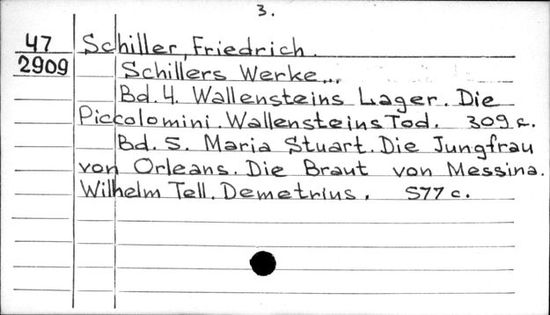 3.
47 Schiller, Friedrich.
2909 Schillers Werke...
Bd. 4. Wallensteins Lager. Die
Piccolomini. Wallensteins Tod. 309 c.
Bd. 5. Maria Stuart. Die Jungfrau
von Orleans. Die Braut von Messina.
Wilhelm Tell. Demetrius. 577 c.